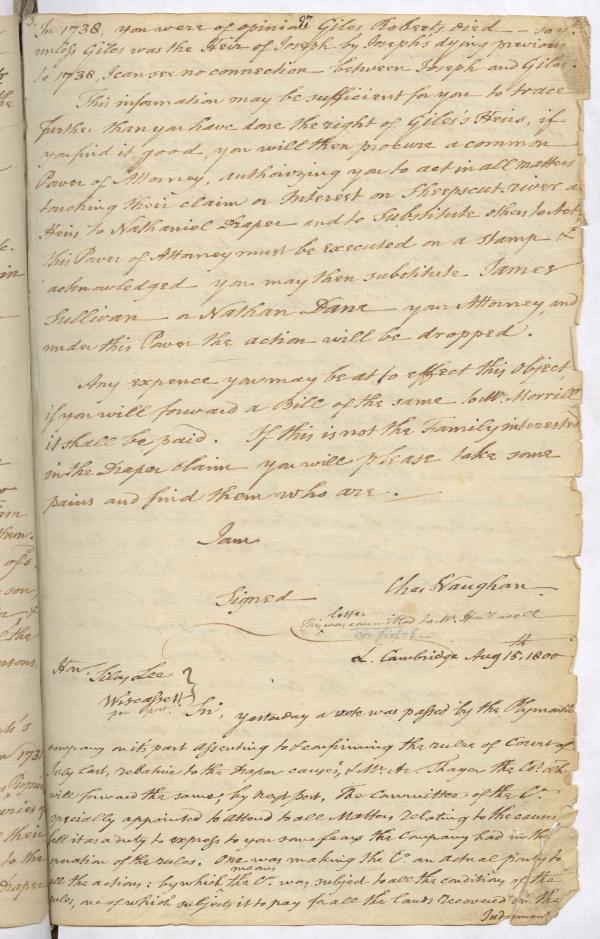 In 1738, you were of opinion Giles Roberts died — say.
unless Giles was the Heir of Joseph by Joseph's dying previous
to 1738, I can see no connection between Joseph and Giles.
This information may be sufficient for you to trace
further than you have done the right of Giles's Heirs, if
you find it good, you will then procure a common
Power of Attorney, authorizing you to act in all matters
touching their claim or Interest on Sheepscut river as
Heirs to Nathaniel Draper and to Substitute others to Act,
this Power of Attorney must be executed on a stamp &
acknowledged you may then substitute James
Sullivan or Nathan Dane your Attorney, and
under this Power the action will be dropped.
Any expence you may be at to effect this Object,
if you will forward a Bill of the same to Mr. Morrill
it shall be paid. If this is not the Family interested
in the Draper claim you will please take some
pains and find them who are.
I am
Signed Chas Vaughan
letter
This was committed to Mr.
confided
L. Cambridge Aug 15th, 1800
Hon. Silas Lee
Wiscassett
per post.
Sir, yesterday a vote was passed by the Plymouth
company on its part assenting to & confirming the rules of Court of
July last, relative to the Draper causes, & Mr. Ar. Thayer the Co.
will forward the same, by next post. The Committee of the Co.
specially appointed to attend to all Matters relating to the causes
felt it as a duty to express to you some fears the Company had in the
operation of the rules. One was making the Co. an actual party to
means
all the actions: by which the Co. was subject to all the conditions of the
rules, one of which subjects it to pay for all the lands recovered on the
Judgment